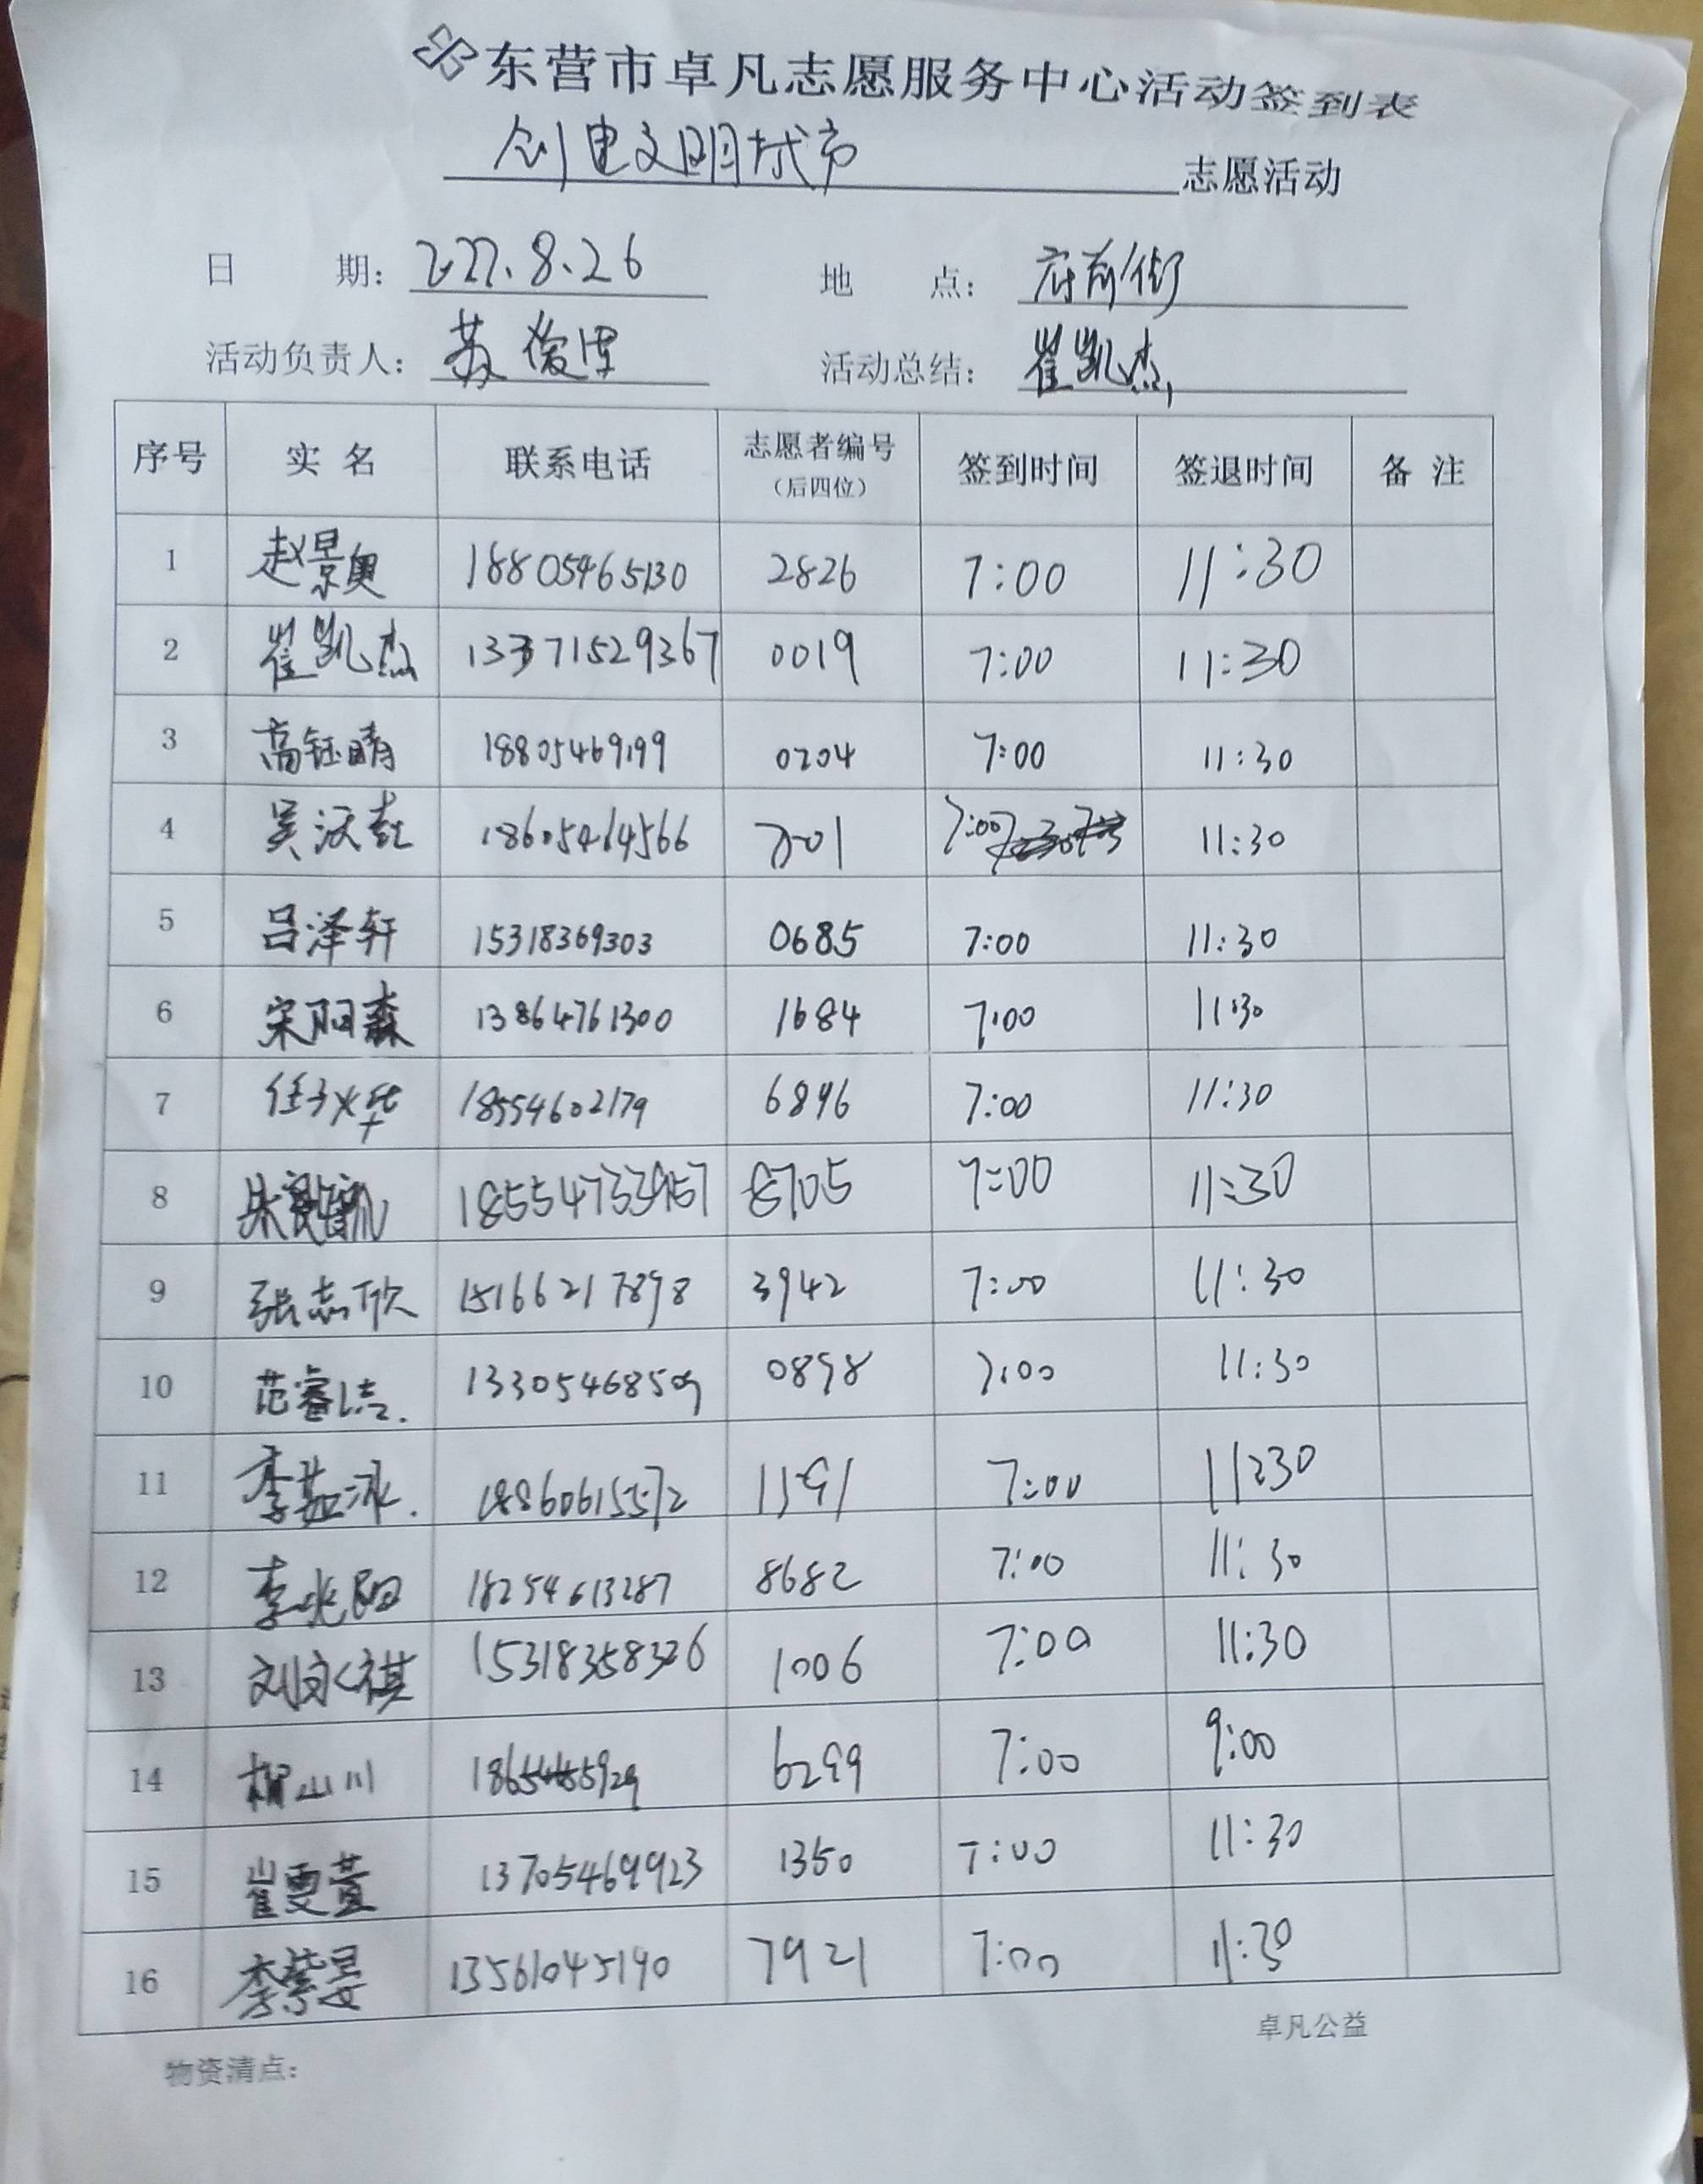 东营市卓凡志愿服务中心活动签到表
创建文明城市 志愿活动
日 期: 2022.8.26 地 点: 府前街
活动负责人: 苏俊 活动总结: 崔凯杰
序号 实名 联系电话 志愿者编号(后四位) 签到时间 签退时间 备注
1 赵景奥 18805465130 2826 7:00 11:30
2 崔凯杰 13371529367 0019 7:00 11:30
3 高钰晴 18805469199 0204 7:00 11:30
4 吴 18605464566 7:00 11:30
5 吕泽轩 15318369303 0685 7:00 11:30
6 宋阳森 13864761300 1684 7:00 11:30
7 任 18554602179 6896 7:00 11:30
8 朱 8705 7:00 11:30
9 张志欣 15166217898 3942 7:00 11:30
10 范睿洁. 13305468509 0898 7:00 11:30
11 李 18860615572 1591 7:00 11:30
12 李兆阳 18254613287 8682 7:00 11:30
13 刘永祺 15318358326 1006 7:00 11:30
14 山川 6299 7:00 9:00
15 崔雯萱 13705469923 1350 7:00 11:30
16 李紫晏 13561045190 7921 7:00 11:30
卓凡公益
物资清点: